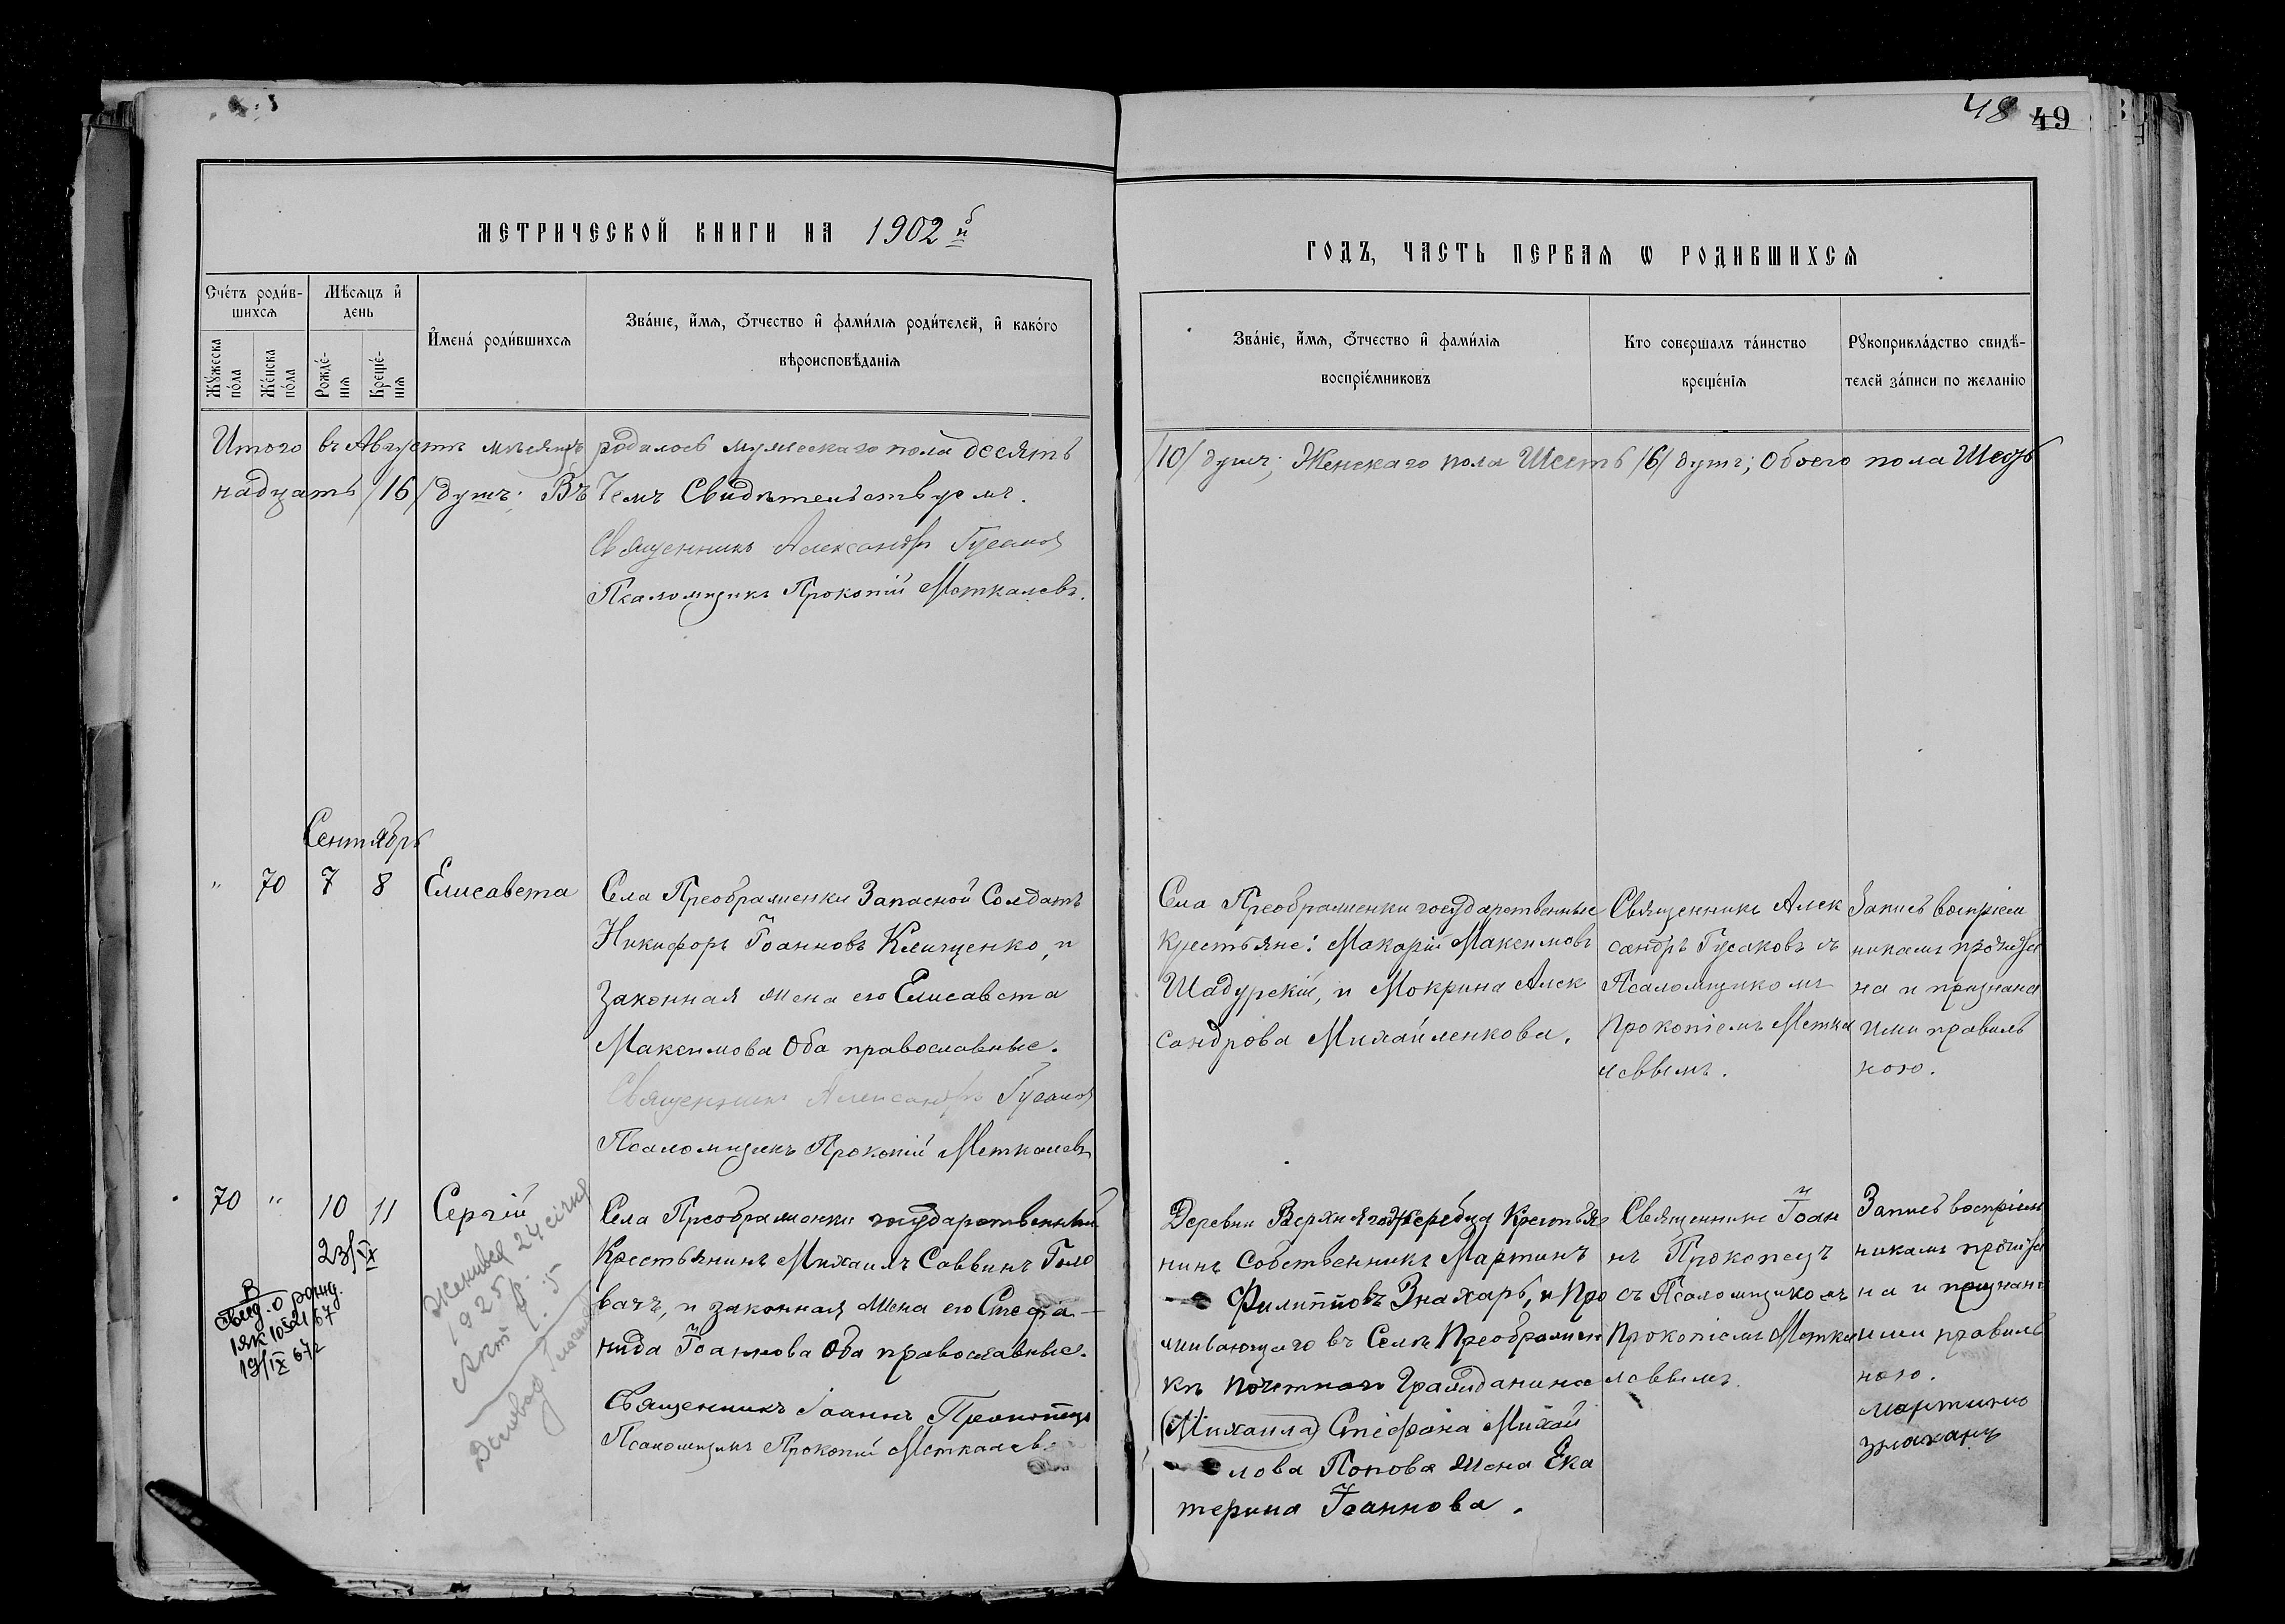 48 49
МЕТРИЧЕСКОЙ КНИГИ НА 1902 й
ГОДЪ, ЧАСТЬ ПЕРВАЯ Ѡ РОДИВШИХСЯ
Счётъ родив-
шихся
Мѣсяцъ и
день
Мужеска
пола
Женска
пола
Рожде-
нія
Креще-
нія
Имена родившихся
Званіе, имя, отчество и фамилія родителей, и какого
вѣроисповѣданія
Званіе, имя, отчество и фамилія
воспріемниковъ
Кто совершалъ таинство
крещенія
Рукоприкладство свидѣ-
телей записи по желанію
Итого въ Августѣ мѣсяцѣ родилось мужескаго пола десять /10/ душъ; Женскаго пола Шесть /6/ душъ; Обоего пола Шест
надцать /16/ душъ: Въ Чемъ Свидѣтельствуемъ.
Священникъ Александръ Гусаковъ
Псаломщикъ Прокопій Меткалевъ.
Сентябрь
" 70 7 8 Елисавета
Села Преображенки Запасной Солдатъ
Никифоръ Іоанновъ Клищенко, и
Законная жена его Елисавета
Максимова Оба православные.
Священникъ Александръ Гусаковъ
Псаломщикъ Прокопій Меткалевъ
Села Преображенки государственные
Крестьяне: Макарій Максимовъ
Шадурскій, и Мокрина Алек
сандрова Михайленкова.
Священникъ Алек
сандръ Гусаковъ съ
Псаломщикомъ
Прокопіемъ Метка
левымъ.
Запись воспріем
никамъ прочита
на и признана
ими правиль
ною.
70 " 10 11 Сергій
23/IX
В
свид. о рожд.
19/IX 67г
Женився 24 січня
1925 р.
Акт ч. 5
Села Преображенки государственный
Крестьянинъ Михаилъ Саввинъ Голо
вачъ, и законная жена его Стефа-
нида Іоаннова Оба православные.
Священникъ Іоаннъ Прокопецъ
Псаломщикъ Прокопій Меткалевъ
Деревни Верхняго Жеребца Крестья
нинъ Собственникъ Мартинъ
Филипповъ Знахарь, и Про
живающаго въ Селѣ Преображен
кѣ почетнаго Гражданина
(Михаила) Стефана Михай
лова Попова жена Ека
терина Іоаннова.
Священникъ Іоан
нъ Прокопецъ
съ Псаломщикомъ
Прокопіемъ Метка
левымъ
Запись воспріем
никамъ прочита
на и признан
ими правиль
ною.
мартинъ
знахарь